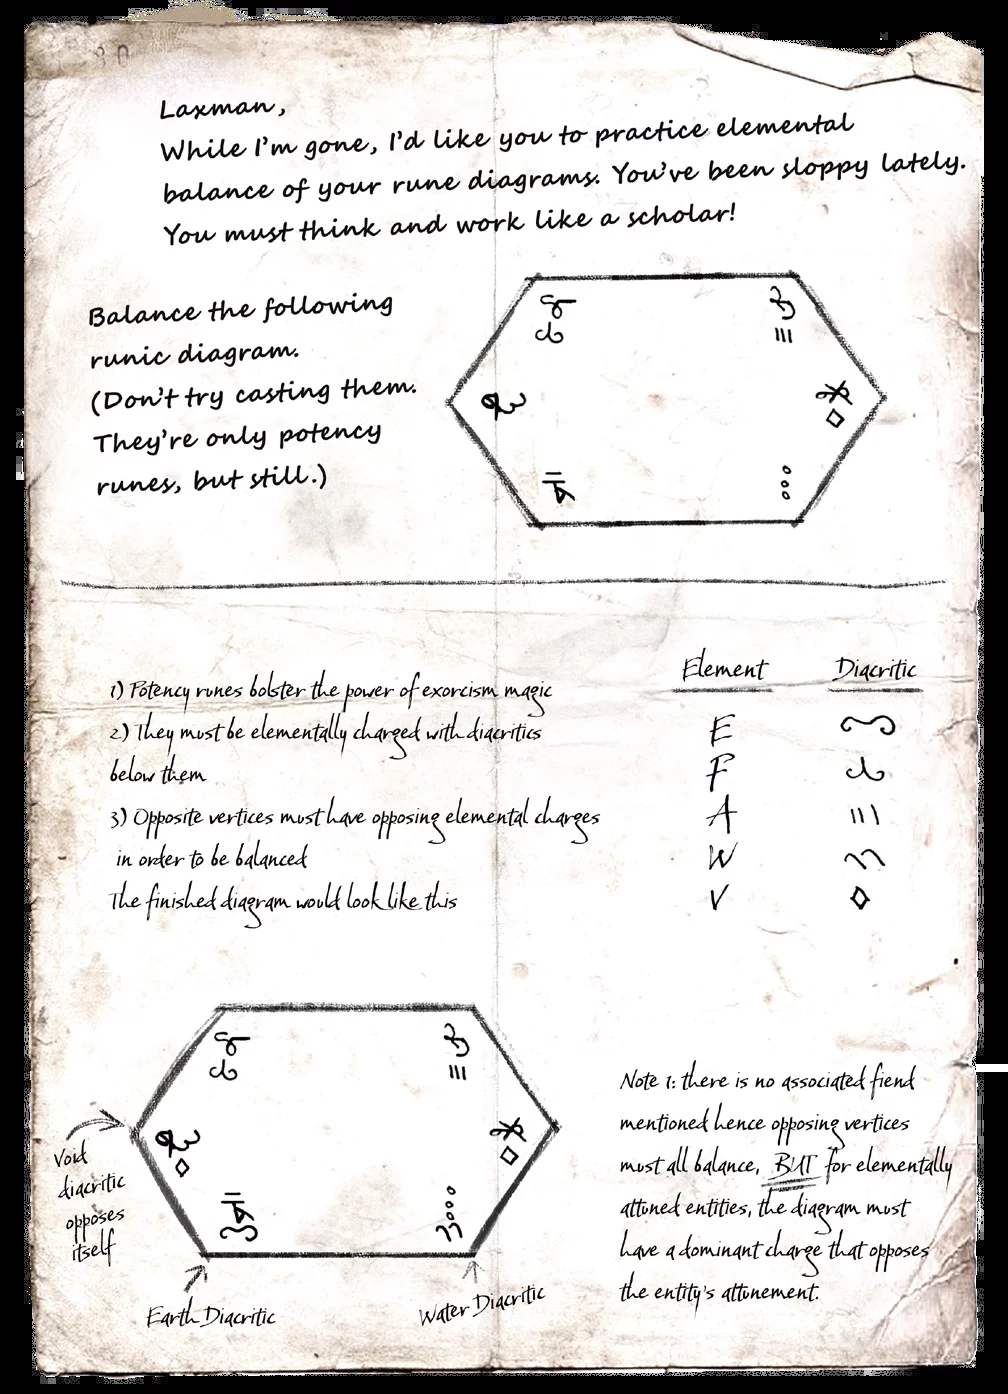 Laxman,
While I'm gone, I'd like you to practice elemental
balance of your rune diagrams. You've been sloppy lately.
You must think and work like a scholar!
Balance the following
runic diagram.
(Don't try casting them.
They're only potency
runes, but still.)
1) Potency runes bolster the power of exorcism magic
2) They must be elementally charged with diacritics
below them
3) Opposite vertices must have opposing elemental charges
in order to be balanced
The finished diagram would look like this
Element Diacritic
E
F
A
W
V
Void
diacritic
opposes
itself
Earth Diacritic
Water Diacritic
Note 1: there is no associated fiend
mentioned hence opposing vertices
must all balance, BUT for elementally
attuned entities, the diagram must
have a dominant charge that opposes
the entity's attunement.